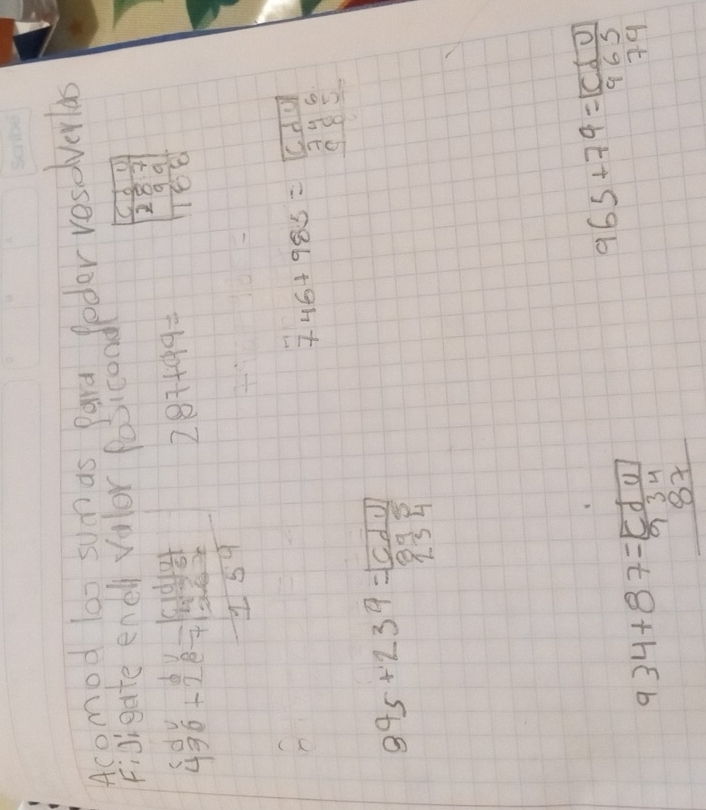 Acomod las sumas para poder resolverlas
Fijigate enell valor posicional
c d u d u
496 + 287 = c d u
1 5 9
287+99= c d u
2 8 7
9 9
1 8 8
746+985= c d u
7 4 6
9 8 5
895+239= c d u
8 9 5
2 3 4
934+87= c d u
9 3 4
8 7
965+79= c d u
9 6 5
7 9
scribe